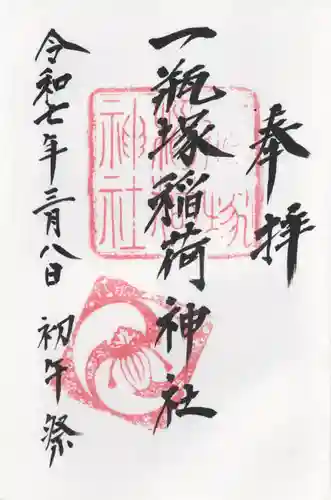 奉拝
一瓶塚稲荷神社
令和七年三月八日 初午祭